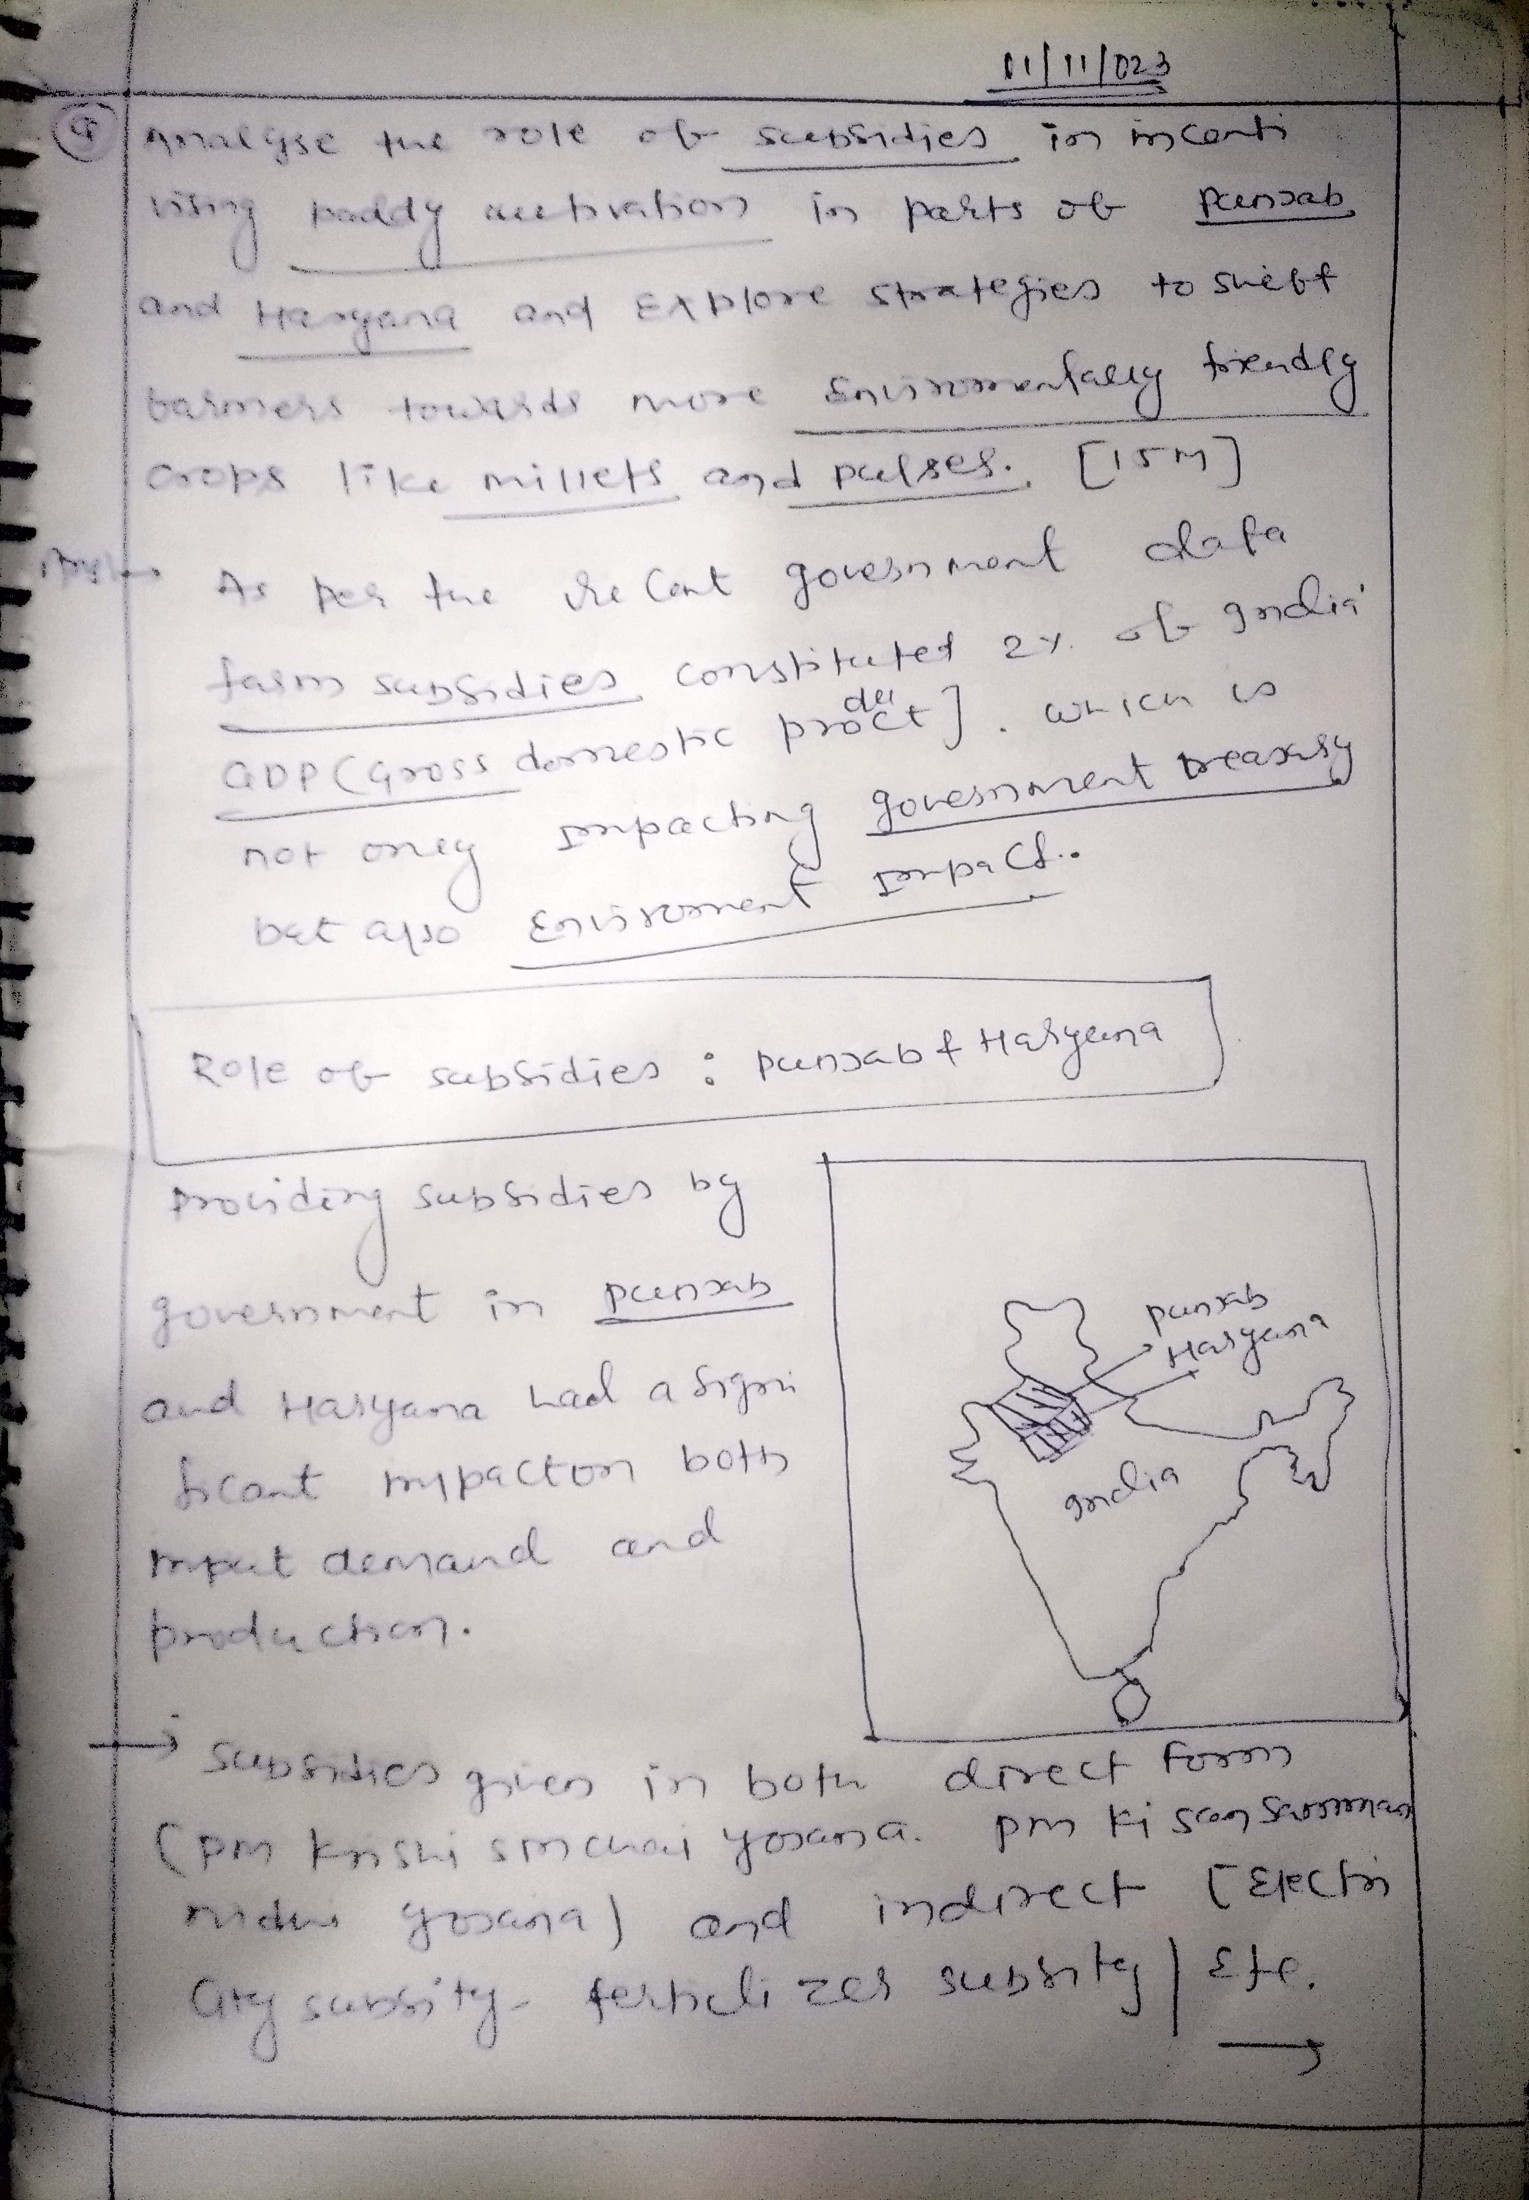 11/11/023
Q Analyse the role of subsidies in incenti
vising paddy cultivation in parts of Punjab
and Haryana and Explore strategies to shift
farmers towards more Environmentally friendly
crops like millets and pulses. [15M]
Ans As per the recent government data
farm subsidies constituted 2% of India'
GDP (Gross domestic product]. which is
not only Impacting government treasury
but also Environment Impact.
Role of subsidies : Punjab & Haryana
Providing subsidies by
government in Punjab
and Haryana had a signi
ficant impact on both
input demand and
production.
Punjab
Haryana
India
→ Subsidies given in both direct form
(PM Krishi Sinchai Yojana. PM Kisan Samman
nidhi yojana) and indirect [Electri
city subsity - fertilizer subsity] Etc.
→